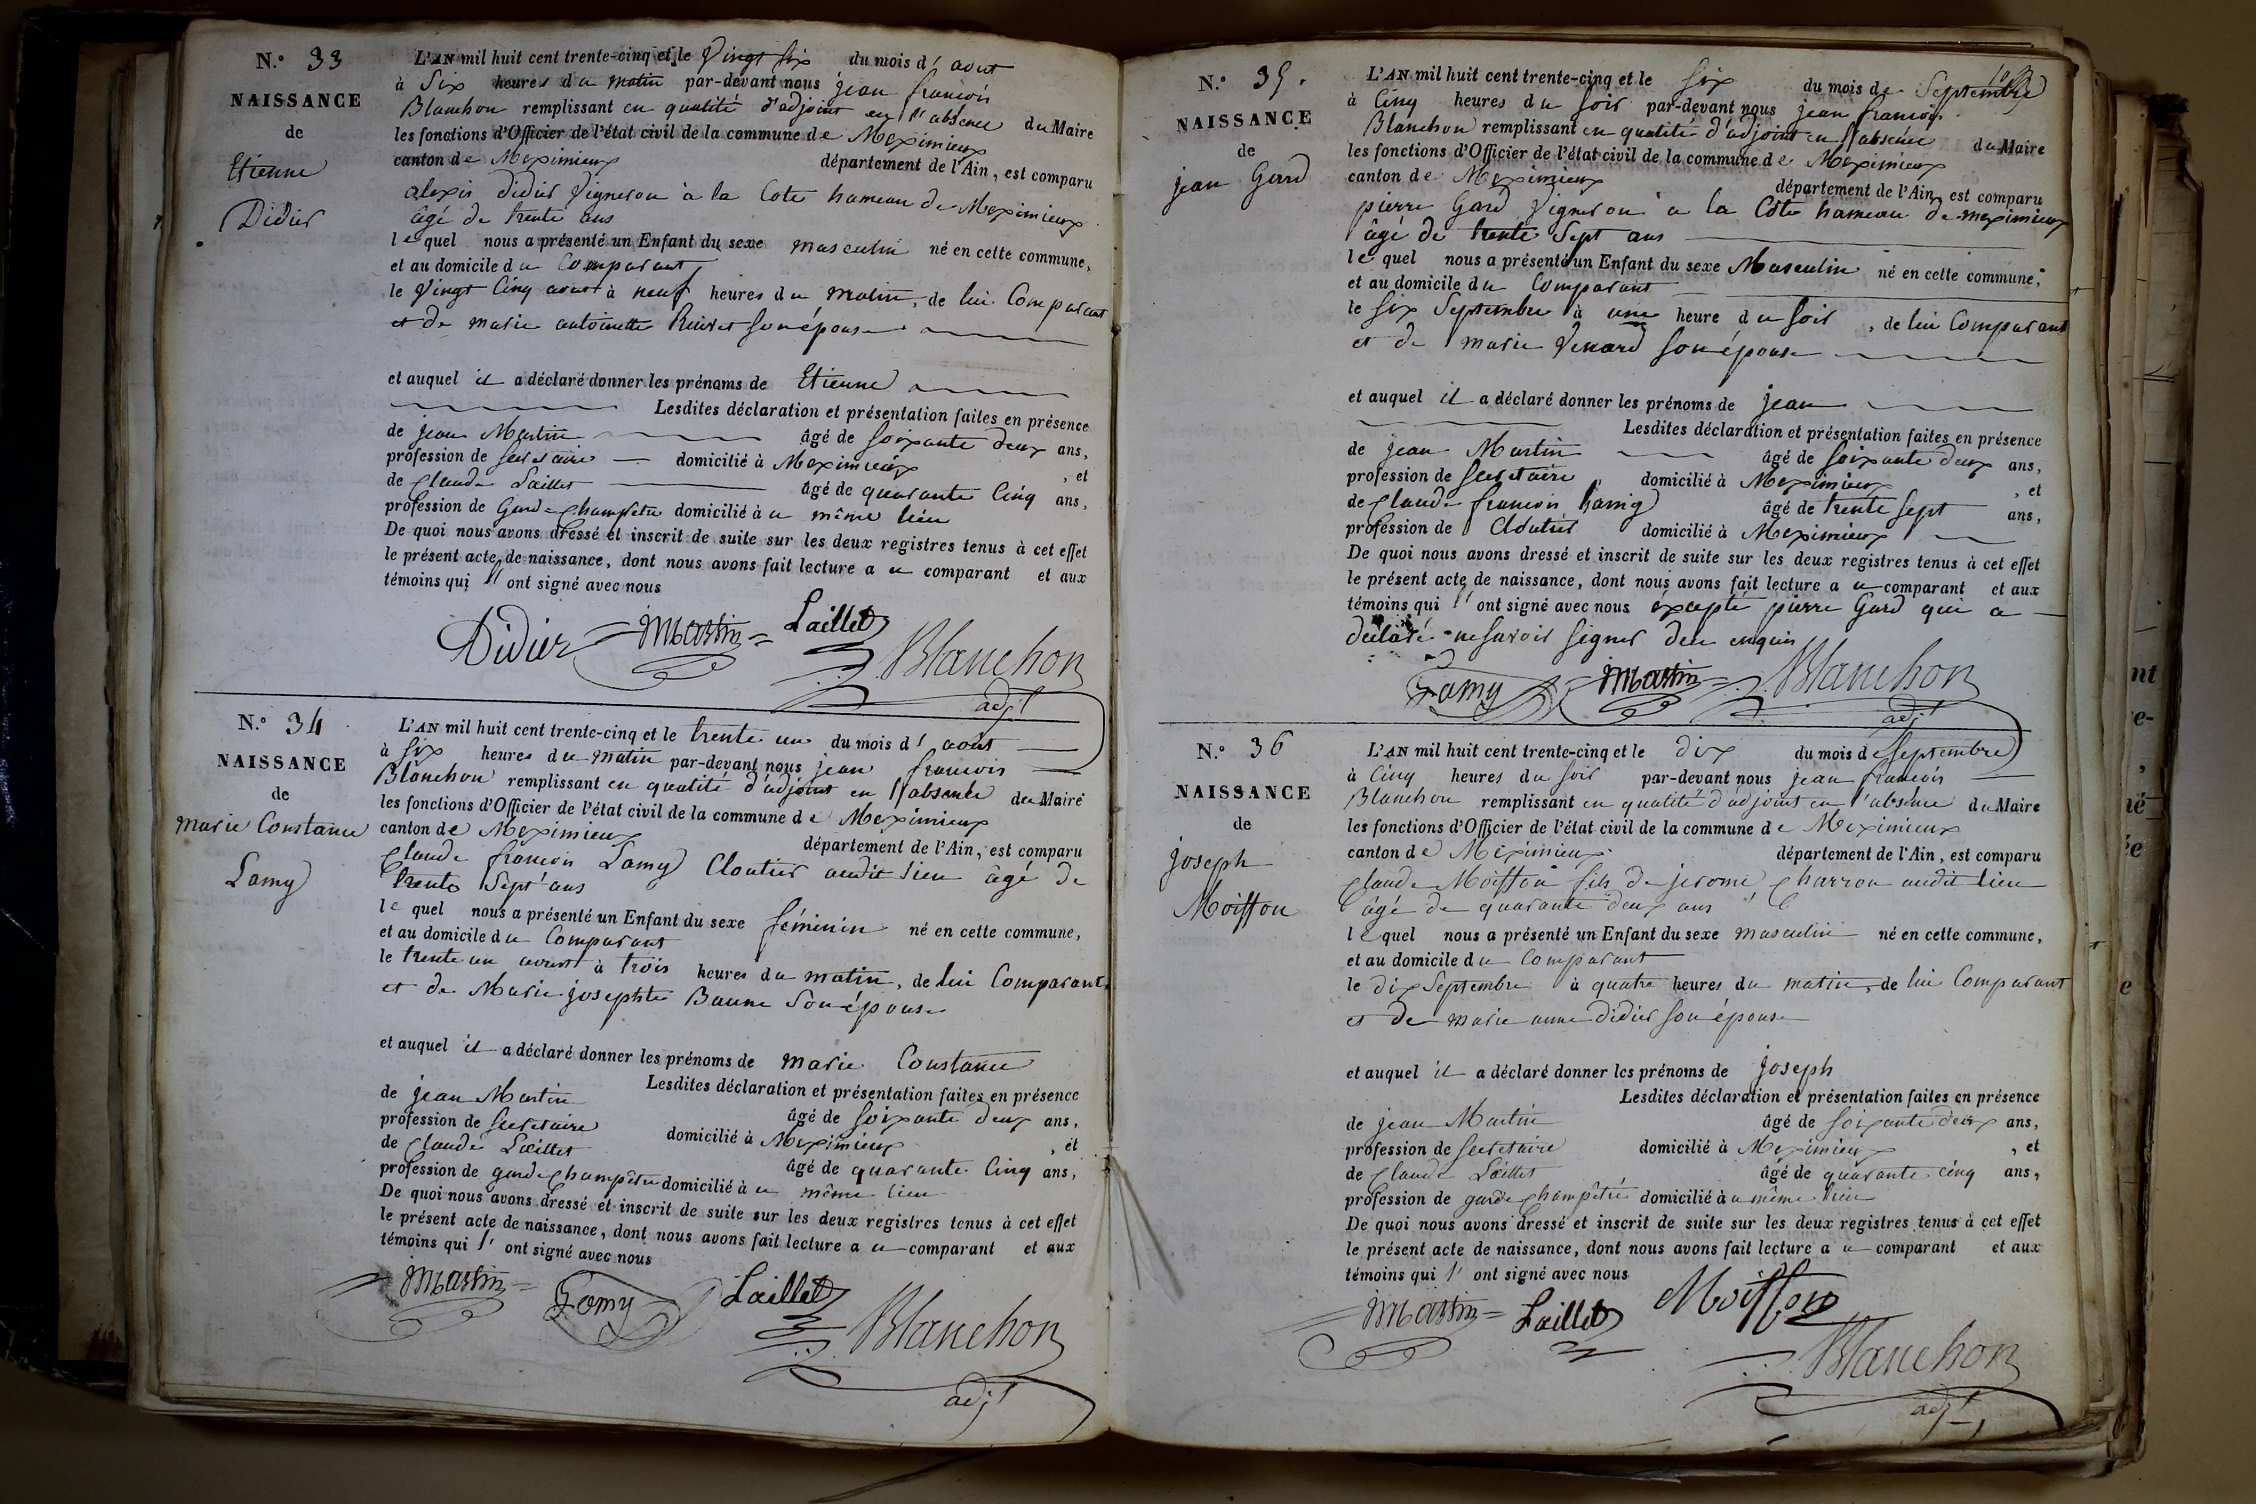 N.° 33
NAISSANCE
de
Etienne
Didier
L'AN mil huit cent trente-cinq et le Vingt Six du mois d' aout
à Six heures du matin par-devant nous jean francois
Blanchon remplissant en qualité d'adjoint en l'absence du Maire
les fonctions d'Officier de l'état civil de la commune de Meximieux
canton de Meximieux département de l'Ain, est comparu
alexis Didier Vigneron à la Cote hameau de Meximieux
âgé de trente ans
lequel nous a présenté un Enfant du sexe masculin né en cette commune,
et au domicile du Comparant
le Vingt Cinq aout à neuf heures du matin, de lui Comparant
et de marie antoinette son épouse
et auquel il a déclaré donner les prénoms de Etienne
Lesdites déclaration et présentation faites en présence
de jean Martin âgé de soixante deux ans,
profession de secretaire domicilié à Meximieux, et
de Claude Laillet âgé de quarante Cinq ans,
profession de Garde Champetre domicilié à u même lieu
De quoi nous avons dressé et inscrit de suite sur les deux registres tenus à cet effet
le présent acte de naissance, dont nous avons fait lecture a u comparant et aux
témoins qui l' ont signé avec nous
Didier Martin Laillet
Blanchon
adjt
N.° 34
NAISSANCE
de
marie Constance
Lamy
L'AN mil huit cent trente-cinq et le trente un du mois d' aout
à Six heures du matin par-devant nous jean francois
Blanchon remplissant en qualité d'adjoint en l'absence du Maire
les fonctions d'Officier de l'état civil de la commune de Meximieux
canton de Meximieux département de l'Ain, est comparu
Claude francois Lamy Cloutier audit lieu âgé de
trente Sept ans
lequel nous a présenté un Enfant du sexe féminin né en cette commune,
et au domicile du Comparant
le trente un aoust à trois heures du matin, de lui Comparant
et de Marie josephte Baume Son épouse
et auquel il a déclaré donner les prénoms de marie Constance
Lesdites déclaration et présentation faites en présence
de jean Martin âgé de soixante deux ans,
profession de secretaire domicilié à Meximieux, et
de Claude Laillet âgé de quarante Cinq ans,
profession de garde Champêtre domicilié à u même lieu
De quoi nous avons dressé et inscrit de suite sur les deux registres tenus à cet effet
le présent acte de naissance, dont nous avons fait lecture a u comparant et aux
témoins qui l' ont signé avec nous
Martin Lamy Laillet
Blanchon
adjt
N.° 35.
NAISSANCE
de
jean Gard
L'AN mil huit cent trente-cinq et le Six du mois de Septembre
à Cinq heures du soir par-devant nous jean francois
Blanchon remplissant en qualité d'adjoint en l'absence du Maire
les fonctions d'Officier de l'état civil de la commune de Meximieux
canton de Meximieux département de l'Ain, est comparu
pierre Gard Vigneron à la Côte hameau de meximieux
âgé de trente Sept ans
lequel nous a présenté un Enfant du sexe Masculin né en cette commune,
et au domicile du Comparant
le six Septembre à une heure du soir, de lui Comparant
et de marie Venard son épouse
et auquel il a déclaré donner les prénoms de jean
Lesdites déclaration et présentation faites en présence
de jean Martin âgé de soixante deux ans,
profession de secretaire domicilié à Meximieux, et
de Claude francois âgé de trente sept ans,
profession de Cloutier domicilié à Meximieux
De quoi nous avons dressé et inscrit de suite sur les deux registres tenus à cet effet
le présent acte de naissance, dont nous avons fait lecture a u comparant et aux
témoins qui l' ont signé avec nous excepté pierre Gard qui a
déclaré ne savoir signer de ce enquis
Lamy Martin Blanchon
adjt
N.° 36
NAISSANCE
de
joseph
Moiffon
L'AN mil huit cent trente-cinq et le dix du mois de Septembre
à Cinq heures du soir par-devant nous jean francois
Blanchon remplissant en qualité d'adjoint en l'absence du Maire
les fonctions d'Officier de l'état civil de la commune de Meximieux
canton de Meximieux département de l'Ain, est comparu
Claude Moiffon fils de jerome Charron audit lieu
âgé de quarante deux ans
lequel nous a présenté un Enfant du sexe masculin né en cette commune,
et au domicile du Comparant
le dix Septembre à quatre heures du matin, de lui Comparant
et de marie anne Didier son épouse
et auquel il a déclaré donner les prénoms de joseph
Lesdites déclaration et présentation faites en présence
de jean Martin âgé de soixante deux ans,
profession de secretaire domicilié à Meximieux, et
de Claude Laillet âgé de quarante cinq ans,
profession de garde Champêtre domicilié à u même lieu
De quoi nous avons dressé et inscrit de suite sur les deux registres tenus à cet effet
le présent acte de naissance, dont nous avons fait lecture a u comparant et aux
témoins qui l' ont signé avec nous
Martin Laillet Moiffon
Blanchon
adjt